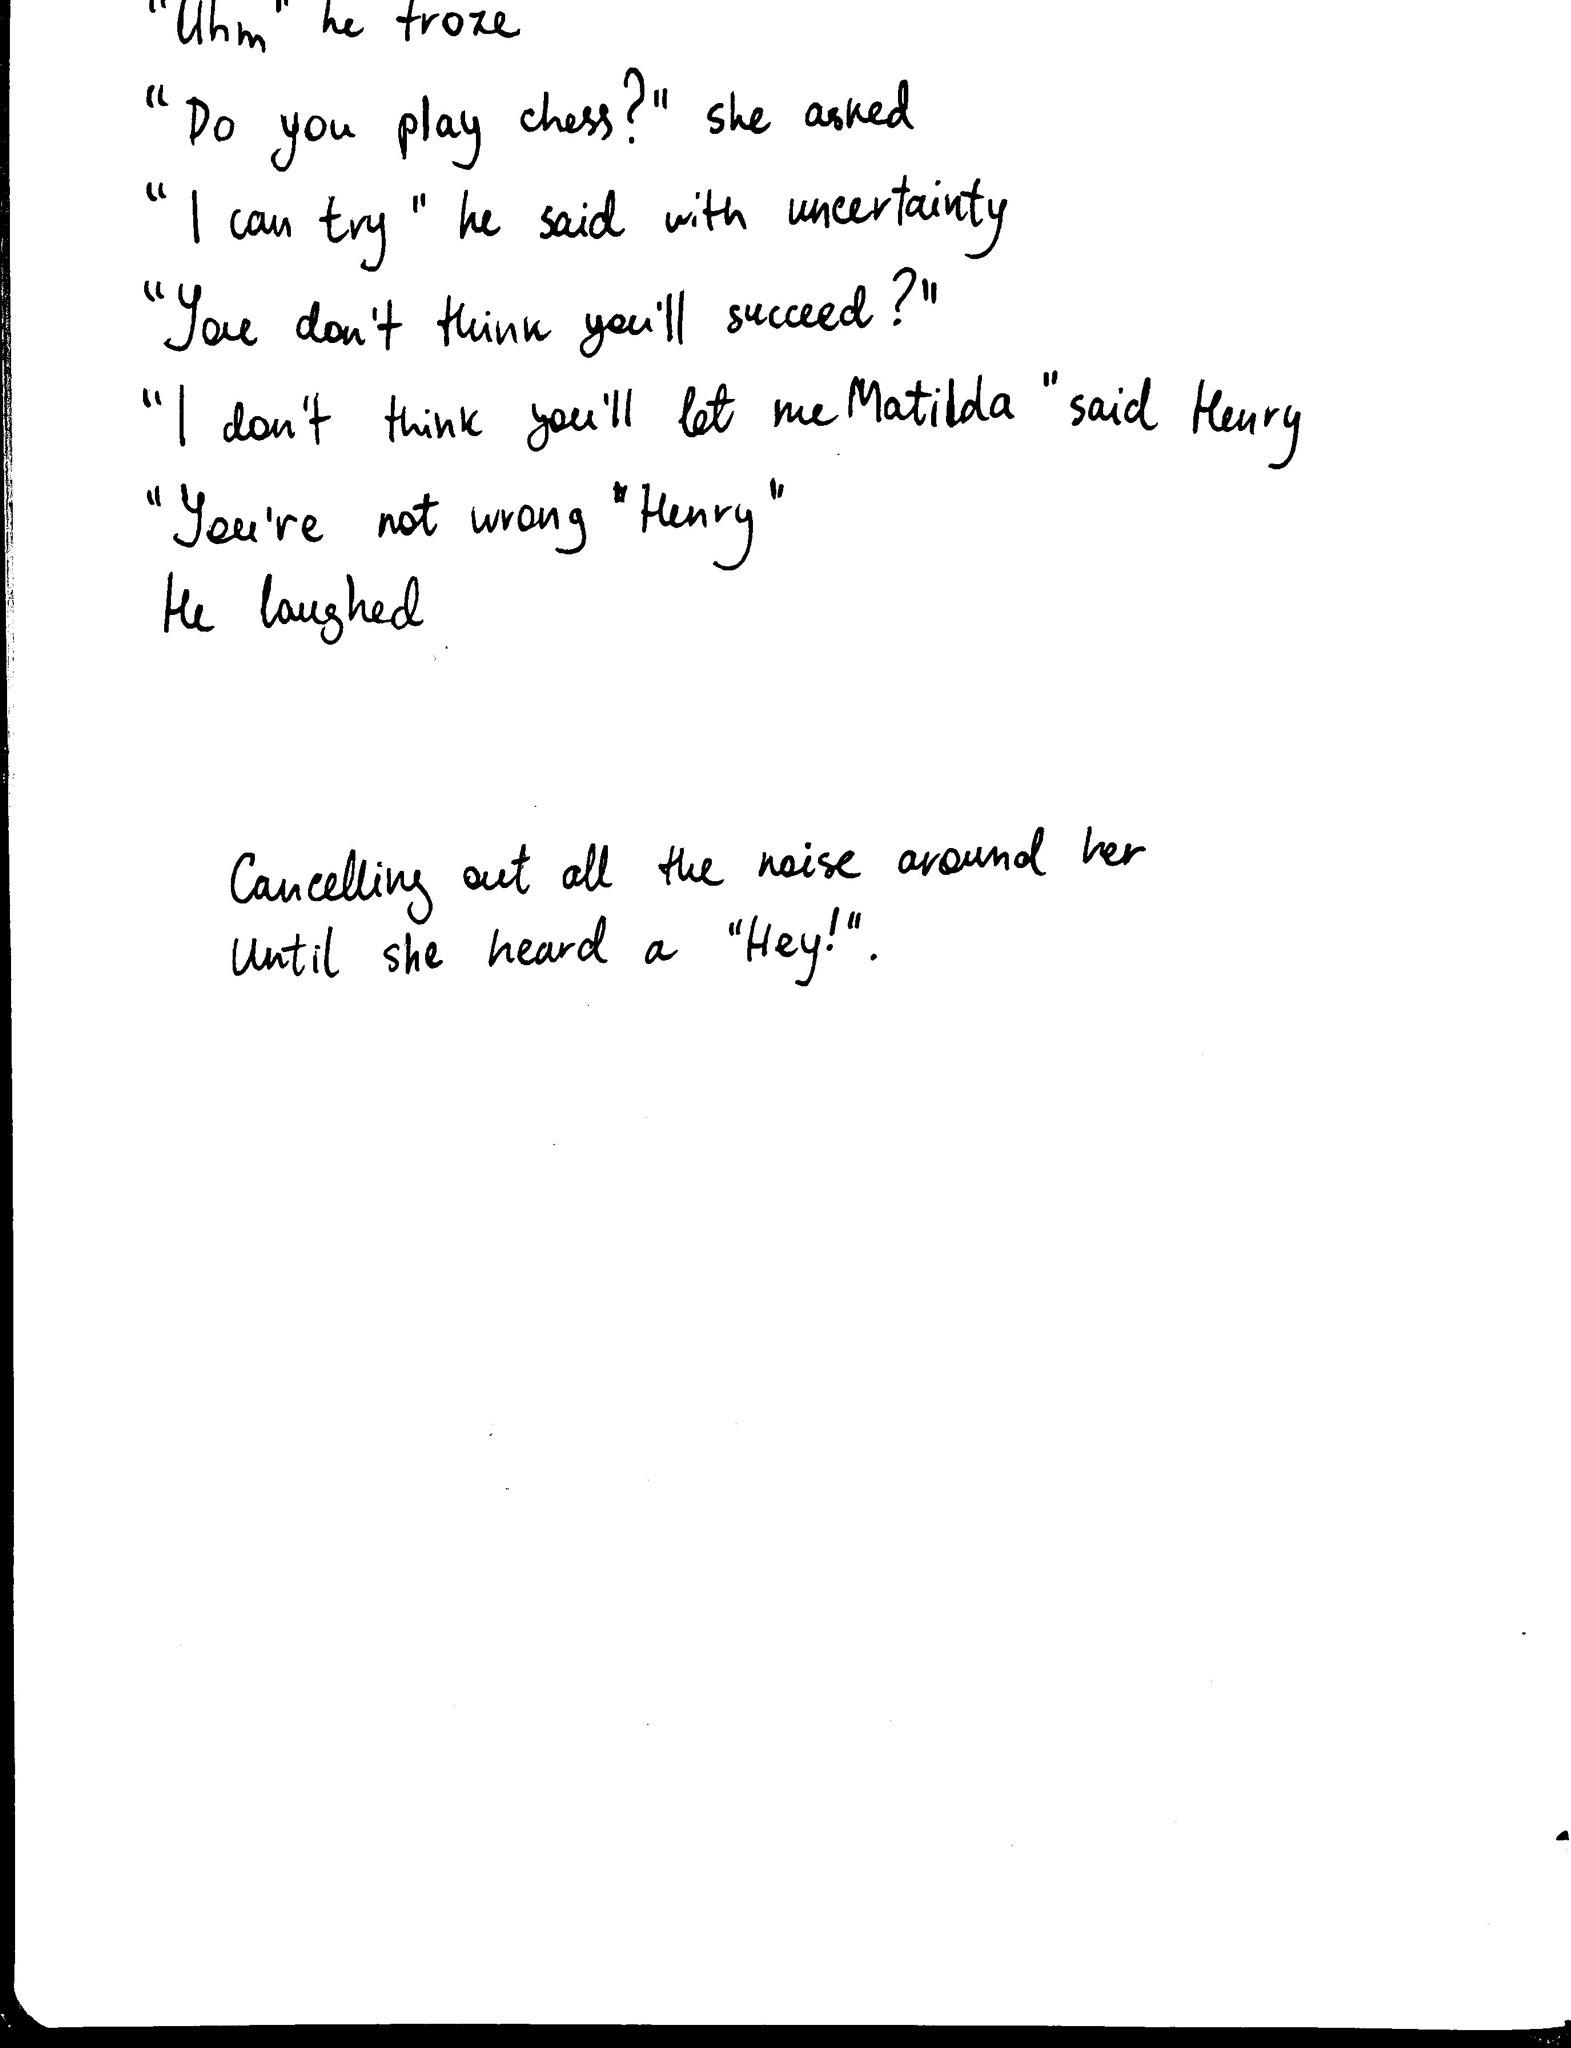 "Uhm" he froze
"Do you play chess?" she asked
"I can try" he said with uncertainty
"You don't think you'll succeed?"
"I don't think you'll let me Matilda" said Henry
"You're not wrong "Henry"
He laughed
Cancelling out all the noise around her
Until she heard a "Hey!".